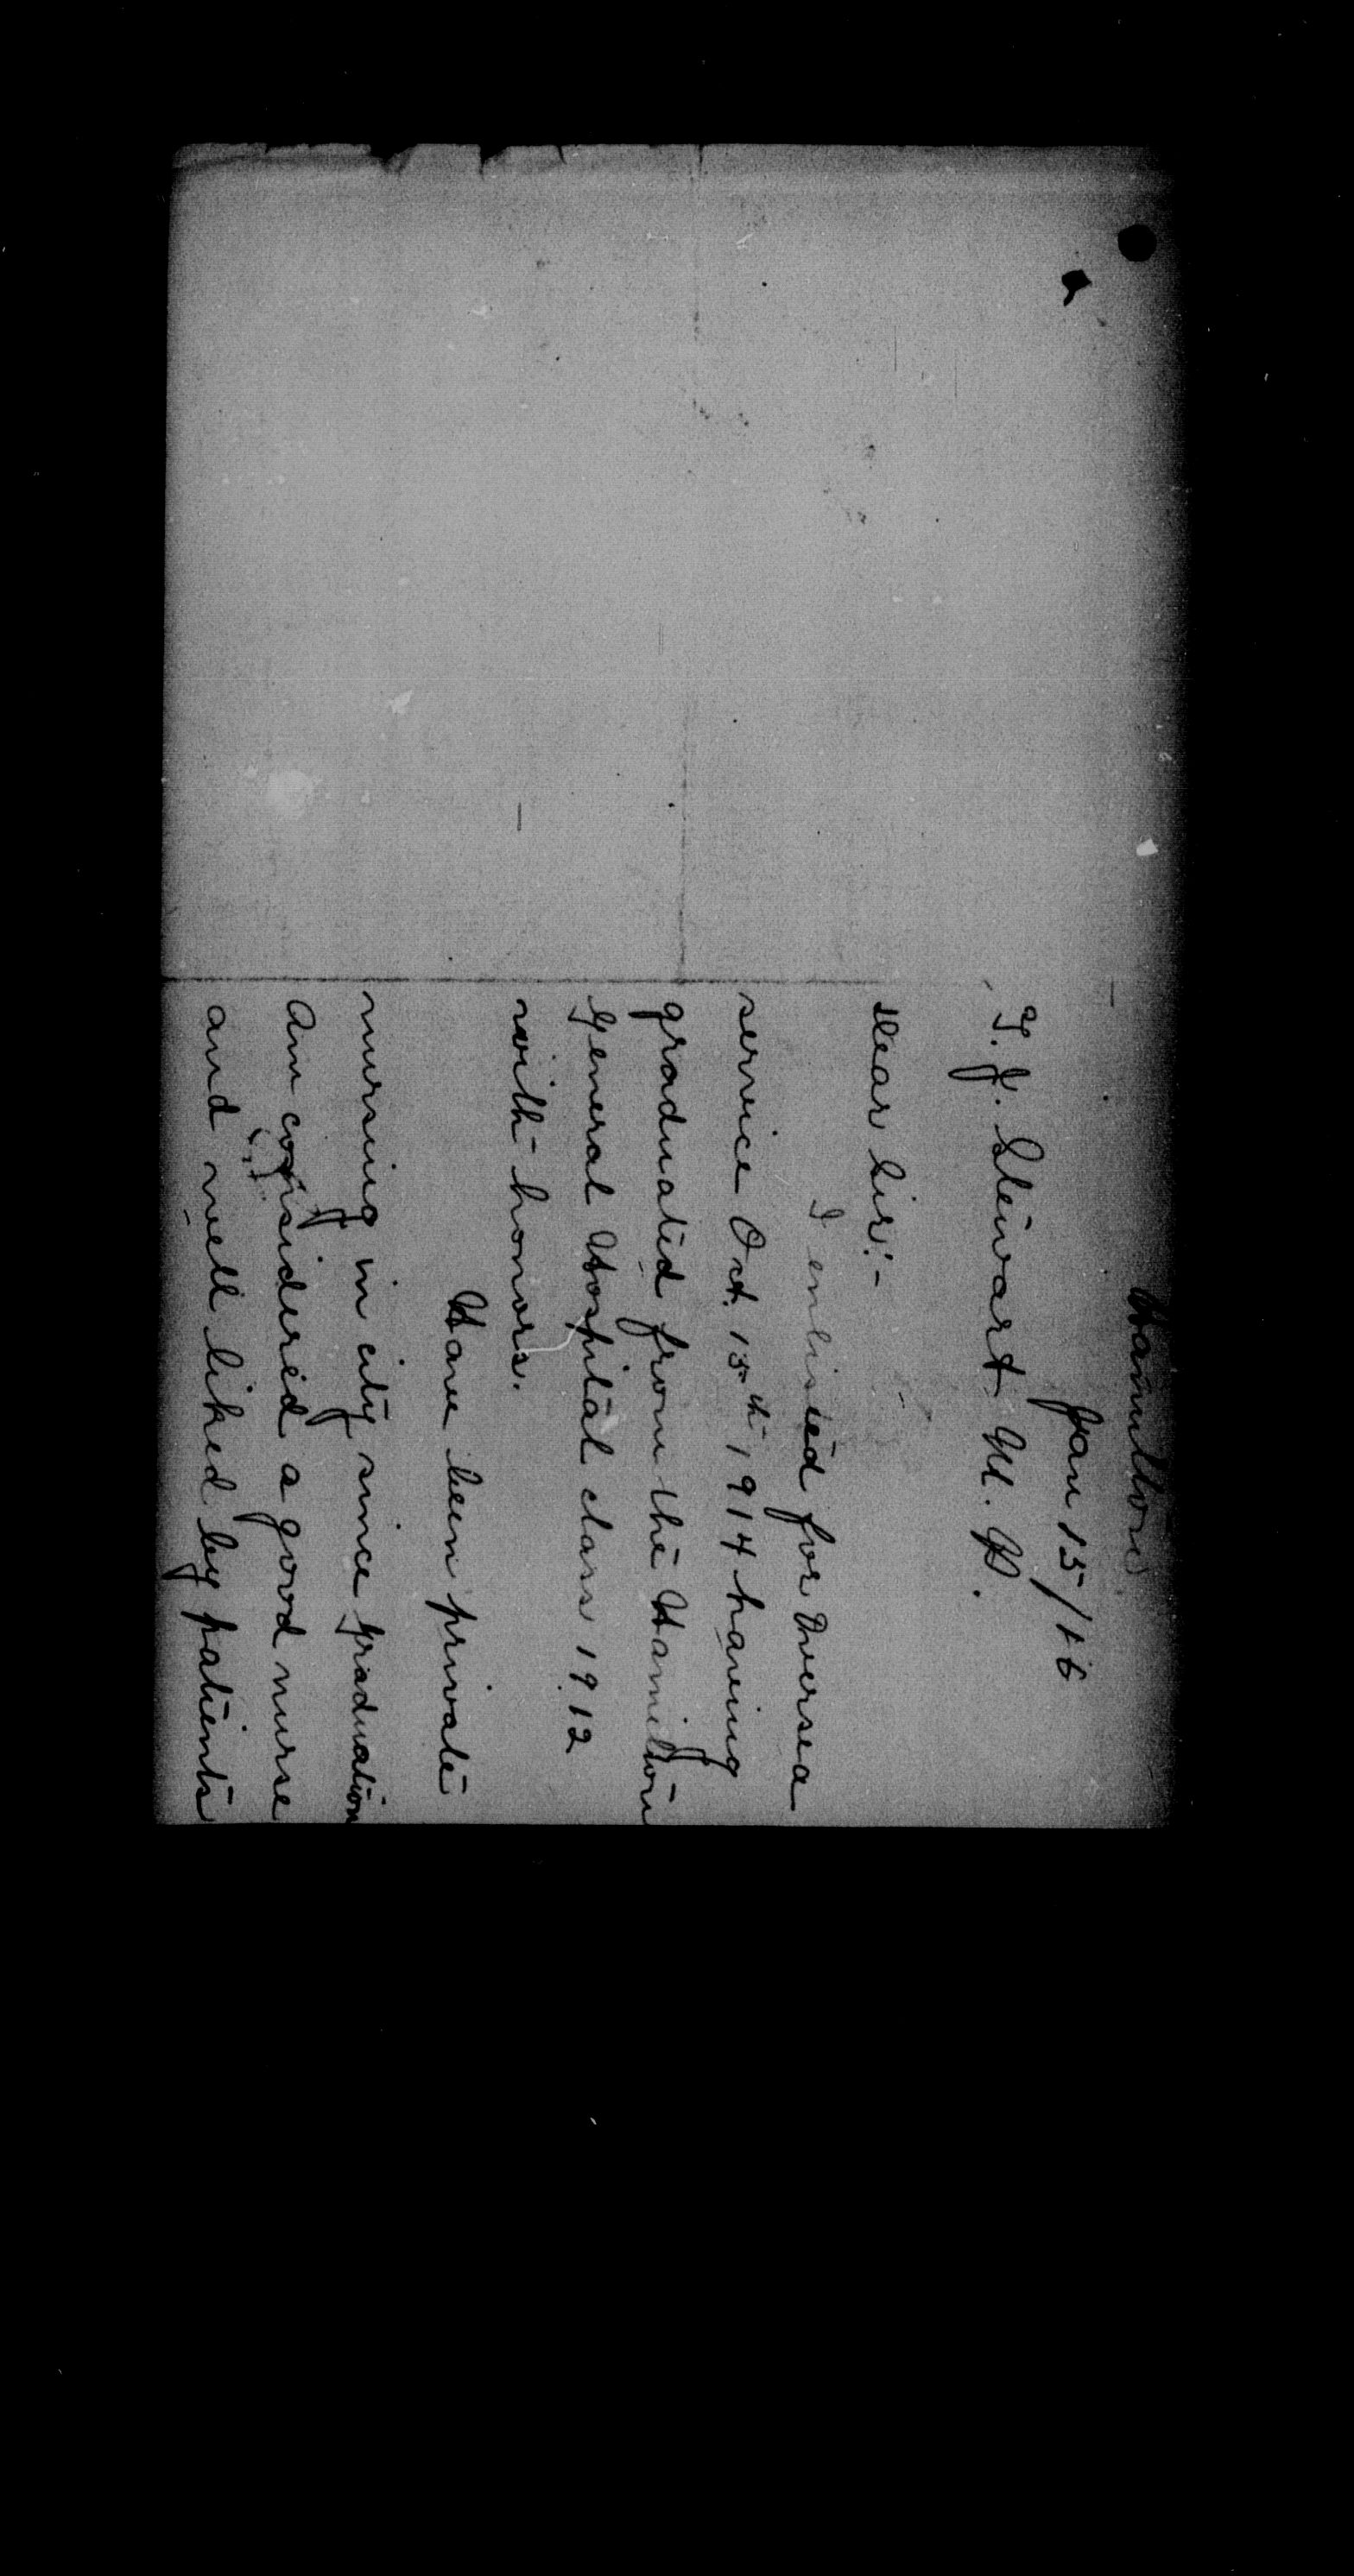 Hamilton
Jan 15/16
T. J. Stewart M. P.
Dear Sir:-
I enlisted for Oversea
service Oct. 15th 1914 having
graduated from the Hamilton
General Hospital class 1912
with honors.
Have been private
nursing in city since graduation
Am considered a good nurse
and well liked by patients